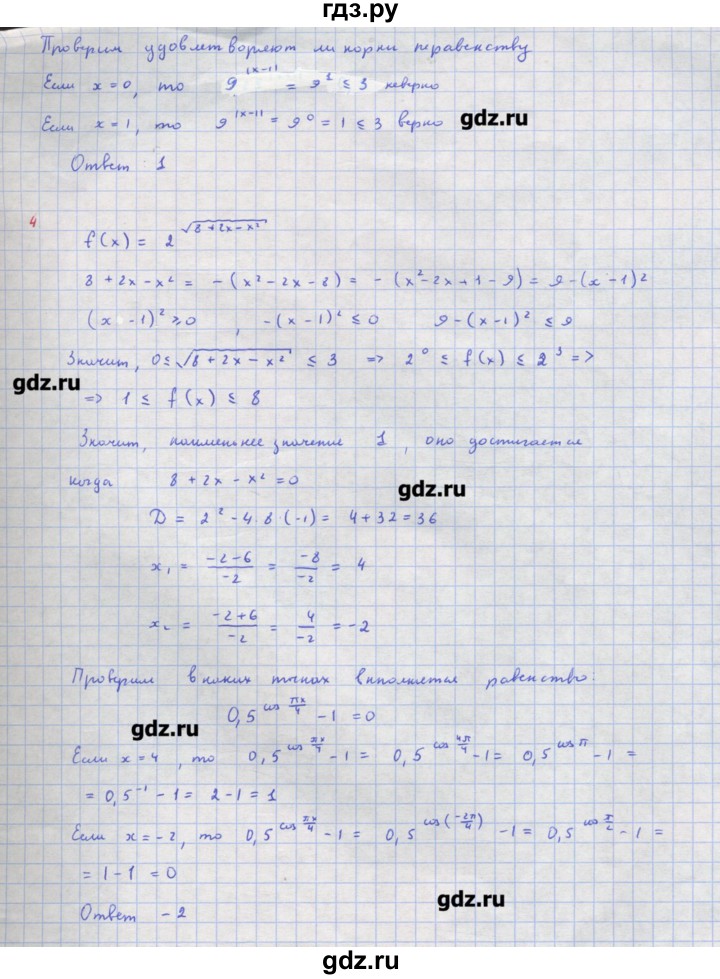 гдз.ру
Проверим удовлетворяют ли корни неравенству
Если x = 0, то 9^|x-1| = 9^1 ≤ 3 неверно
Если x = 1, то 9^|x-1| = 9^0 = 1 ≤ 3 верно
gdz.ru
Ответ : 1
4
f(x) = 2^√(8 + 2x - x²)
8 + 2x - x² = -(x² - 2x - 8) = -(x² - 2x + 1 - 9) = 9 - (x - 1)²
(x - 1)² ≥ 0 , -(x - 1)² ≤ 0 9 - (x - 1)² ≤ 9
Значит, 0 ≤ √(8 + 2x - x²) ≤ 3 => 2^0 ≤ f(x) ≤ 2^3 =>
gdz.ru
=> 1 ≤ f(x) ≤ 8
Значит, наименьнее значение 1, оно достигается
когда 8 + 2x - x² = 0
gdz.ru
D = 2² - 4·8·(-1) = 4 + 32 = 36
x₁ = (-2-6)/(-2) = (-8)/(-2) = 4
x₂ = (-2+6)/(-2) = 4/(-2) = -2
Проверим в каких точках выполняется равенство:
0,5^(cos πx/4) - 1 = 0
gdz.ru
Если x = 4, то 0,5^(cos πx/4) - 1 = 0,5^(cos 4π/4) - 1 = 0,5^(cos π) - 1 =
= 0,5^-1 - 1 = 2 - 1 = 1
Если x = -2, то 0,5^(cos πx/4) - 1 = 0,5^(cos(-2π/4)) - 1 = 0,5^(cos π/2) - 1 =
= 1 - 1 = 0
gdz.ru
Ответ -2
gdz.ru